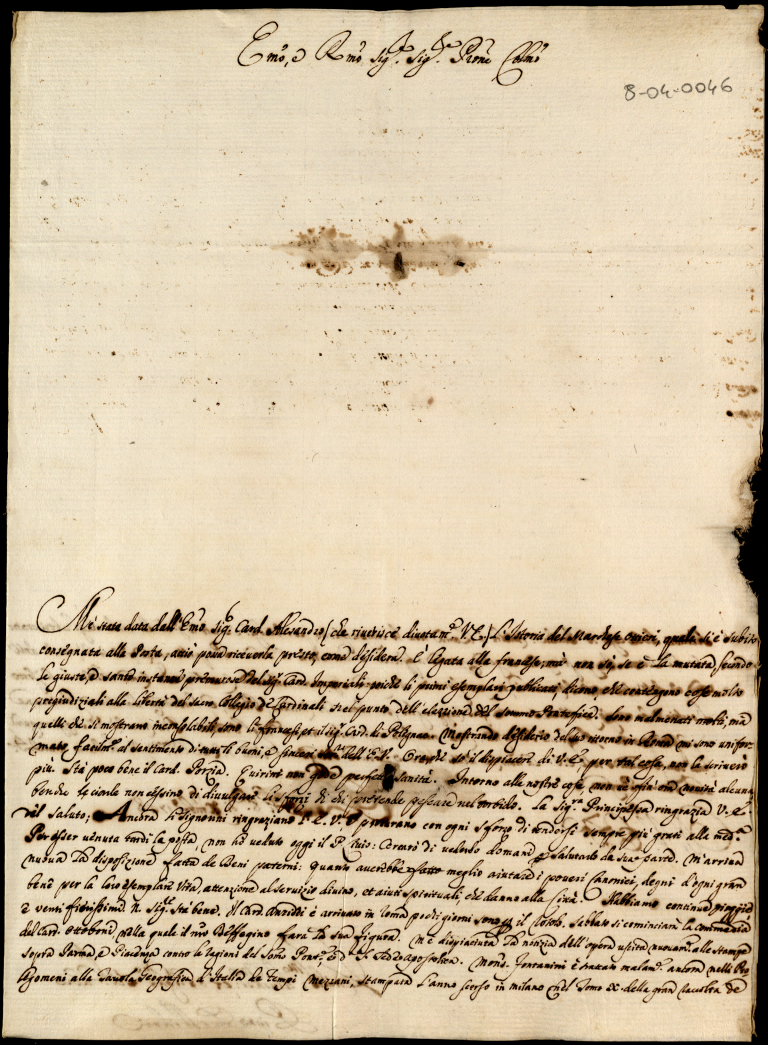 Emo, e Rmo Sigr. Sigr. Prone Colmo
8-04-0046
M'è stata data dall'Emo Sigr. Card. Alesandro (che riverisce divotamte. V.E.) l'Istoria del Marchese Ottieri, quale si è subito
consegnata alla Posta, acciò possa riceverla presto, come desidera. È legata alla francese; mà non sò, se è la mutata secondo
le giuste, e sante instanze premurose del Sigr. Card. Imperiali poiche li primi esemplari pubblicati, dicono, che contengono cose molto
pregiudiziali alla libertà del sacro Collegio de Cardinali nel punto dell'elezzione del sommo Pontefice. Sono malmenati molti, mà
quelli che si mostrano inconsolabili, sono li francesi, et il Sigr. Card. di Polignac. Mostrando desiderio del suo ritorno in Roma mi sono unifor-
mato facilmte. al sentimento di tutti li buoni, e sinceri dell'E.V. Crede se il dispiacere di V.E. per tal cose, non le scriverò
più. Stà poco bene il Card. Porzia. Quirini non gode perfetta sanità. Intorno alle nostre cose, non vè sin ora novità alcuna
benche le cicale non cessino di divulgare li sforzi di chi pretende pescare nel torbido. La Sigra. Principessa ringrazia V.E.
del saluto; Ancora li Signorini ringraziano l'E.V. e procurarano con ogni sforzo di rendersi sempre più grati alla medma.
Per esser venuta tardi la posta, non hò veduto oggi il P. Cercarò di vederlo domani, e salutarlo da sua parte. M'arriva
nuova la disposizione fatta de Beni paterni: quanto averebbe fatto meglio aiutare i poveri Canonici, degni d'ogni gran
bene per la loro esemplare vita, attenzione al servizio divino, et aiuti spirituali, che danno alla Città. Habbiamo continue pioggie
e venti fierissimi. N. Sigre. stà bene. Il Card. è arrivato in Roma pochi giorni sono il Sabbato si cominciarà la commedia
del Card. Ottoboni, nella quale il nro farà la sua figura. M'è dispiaciuta la notizia dell'opera uscita nuovamte. alle stampe
sopra Parma, e Piacenza contro le ragioni del Sede Apostolica. Monsr. Fontanini è trattato malamte. ancora nelli Pro-
legomeni alla Tavola Geografica d'Italia de Tempi Mezzani, stampata l'anno scorso in Milano nel Tomo X della gran raccolta de